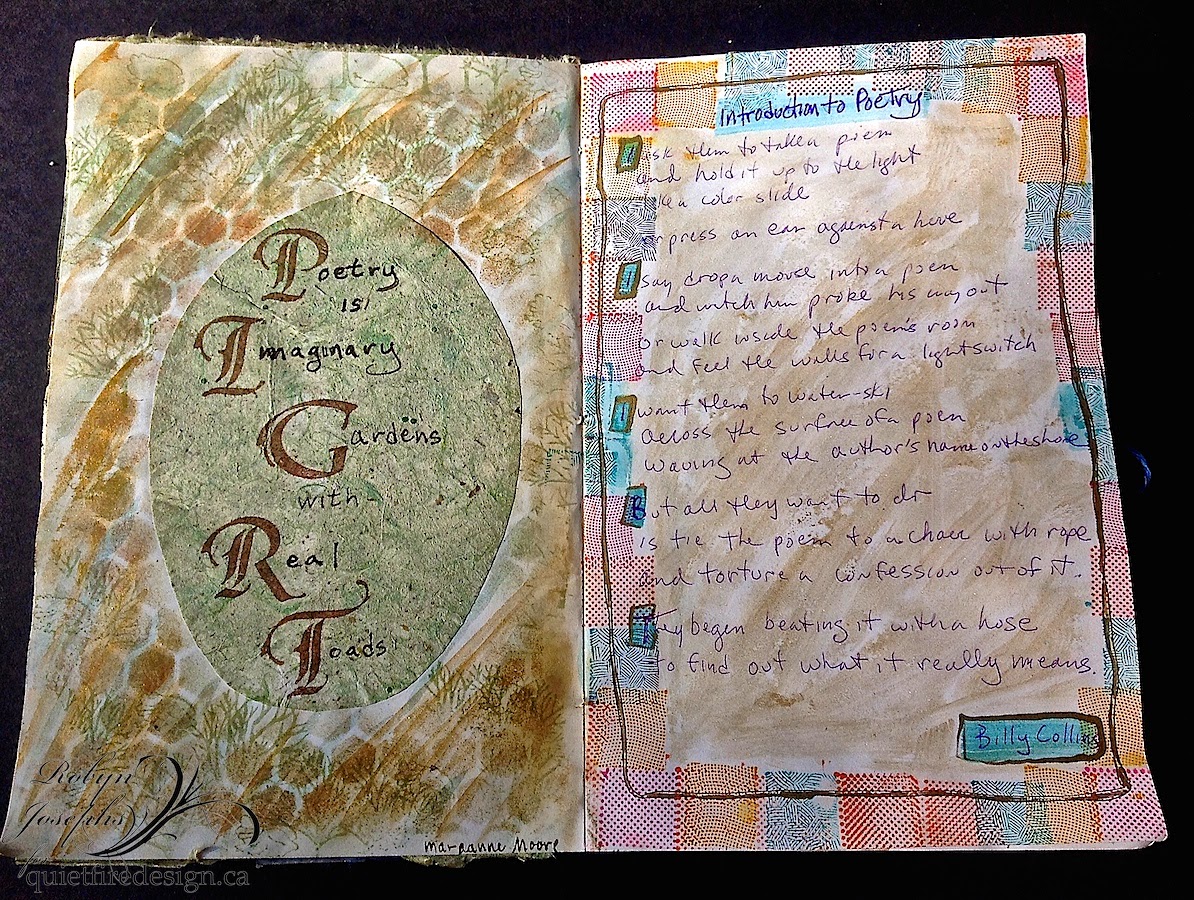 Poetry
is
Imaginary
Gardens
with
Real
Toads
Marianne Moore
Robyn
Josephs
quietfiredesign.ca
Introduction to Poetry
I ask them to take a poem
and hold it up to the light
like a color slide
or press an ear against a hive
I say drop a mouse into a poem
and watch him probe his way out
or walk inside the poem's room
and feel the walls for a light switch
I want them to water-ski
across the surface of a poem
waving at the author's name on the shore
But all they want to do
is tie the poem to a chair with rope
and torture a confession out of it.
They begin beating it with a hose
to find out what it really means.
Billy Collins